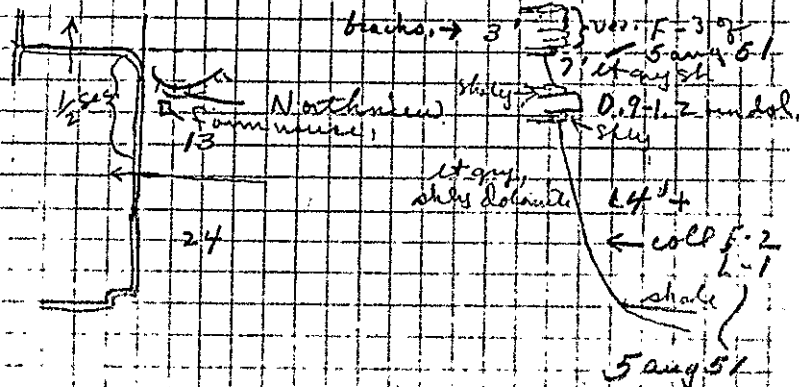 brachs. → 3'
F-3 of
5 aug 51
7' lt gry sh
shaly
0.9-1.2 und dol.
shly
1/2 sec
Northview
Farmhouse
13
lt gry,
shly dolomite 14'+
24
← coll F-2
L-1
shale
5 aug 51